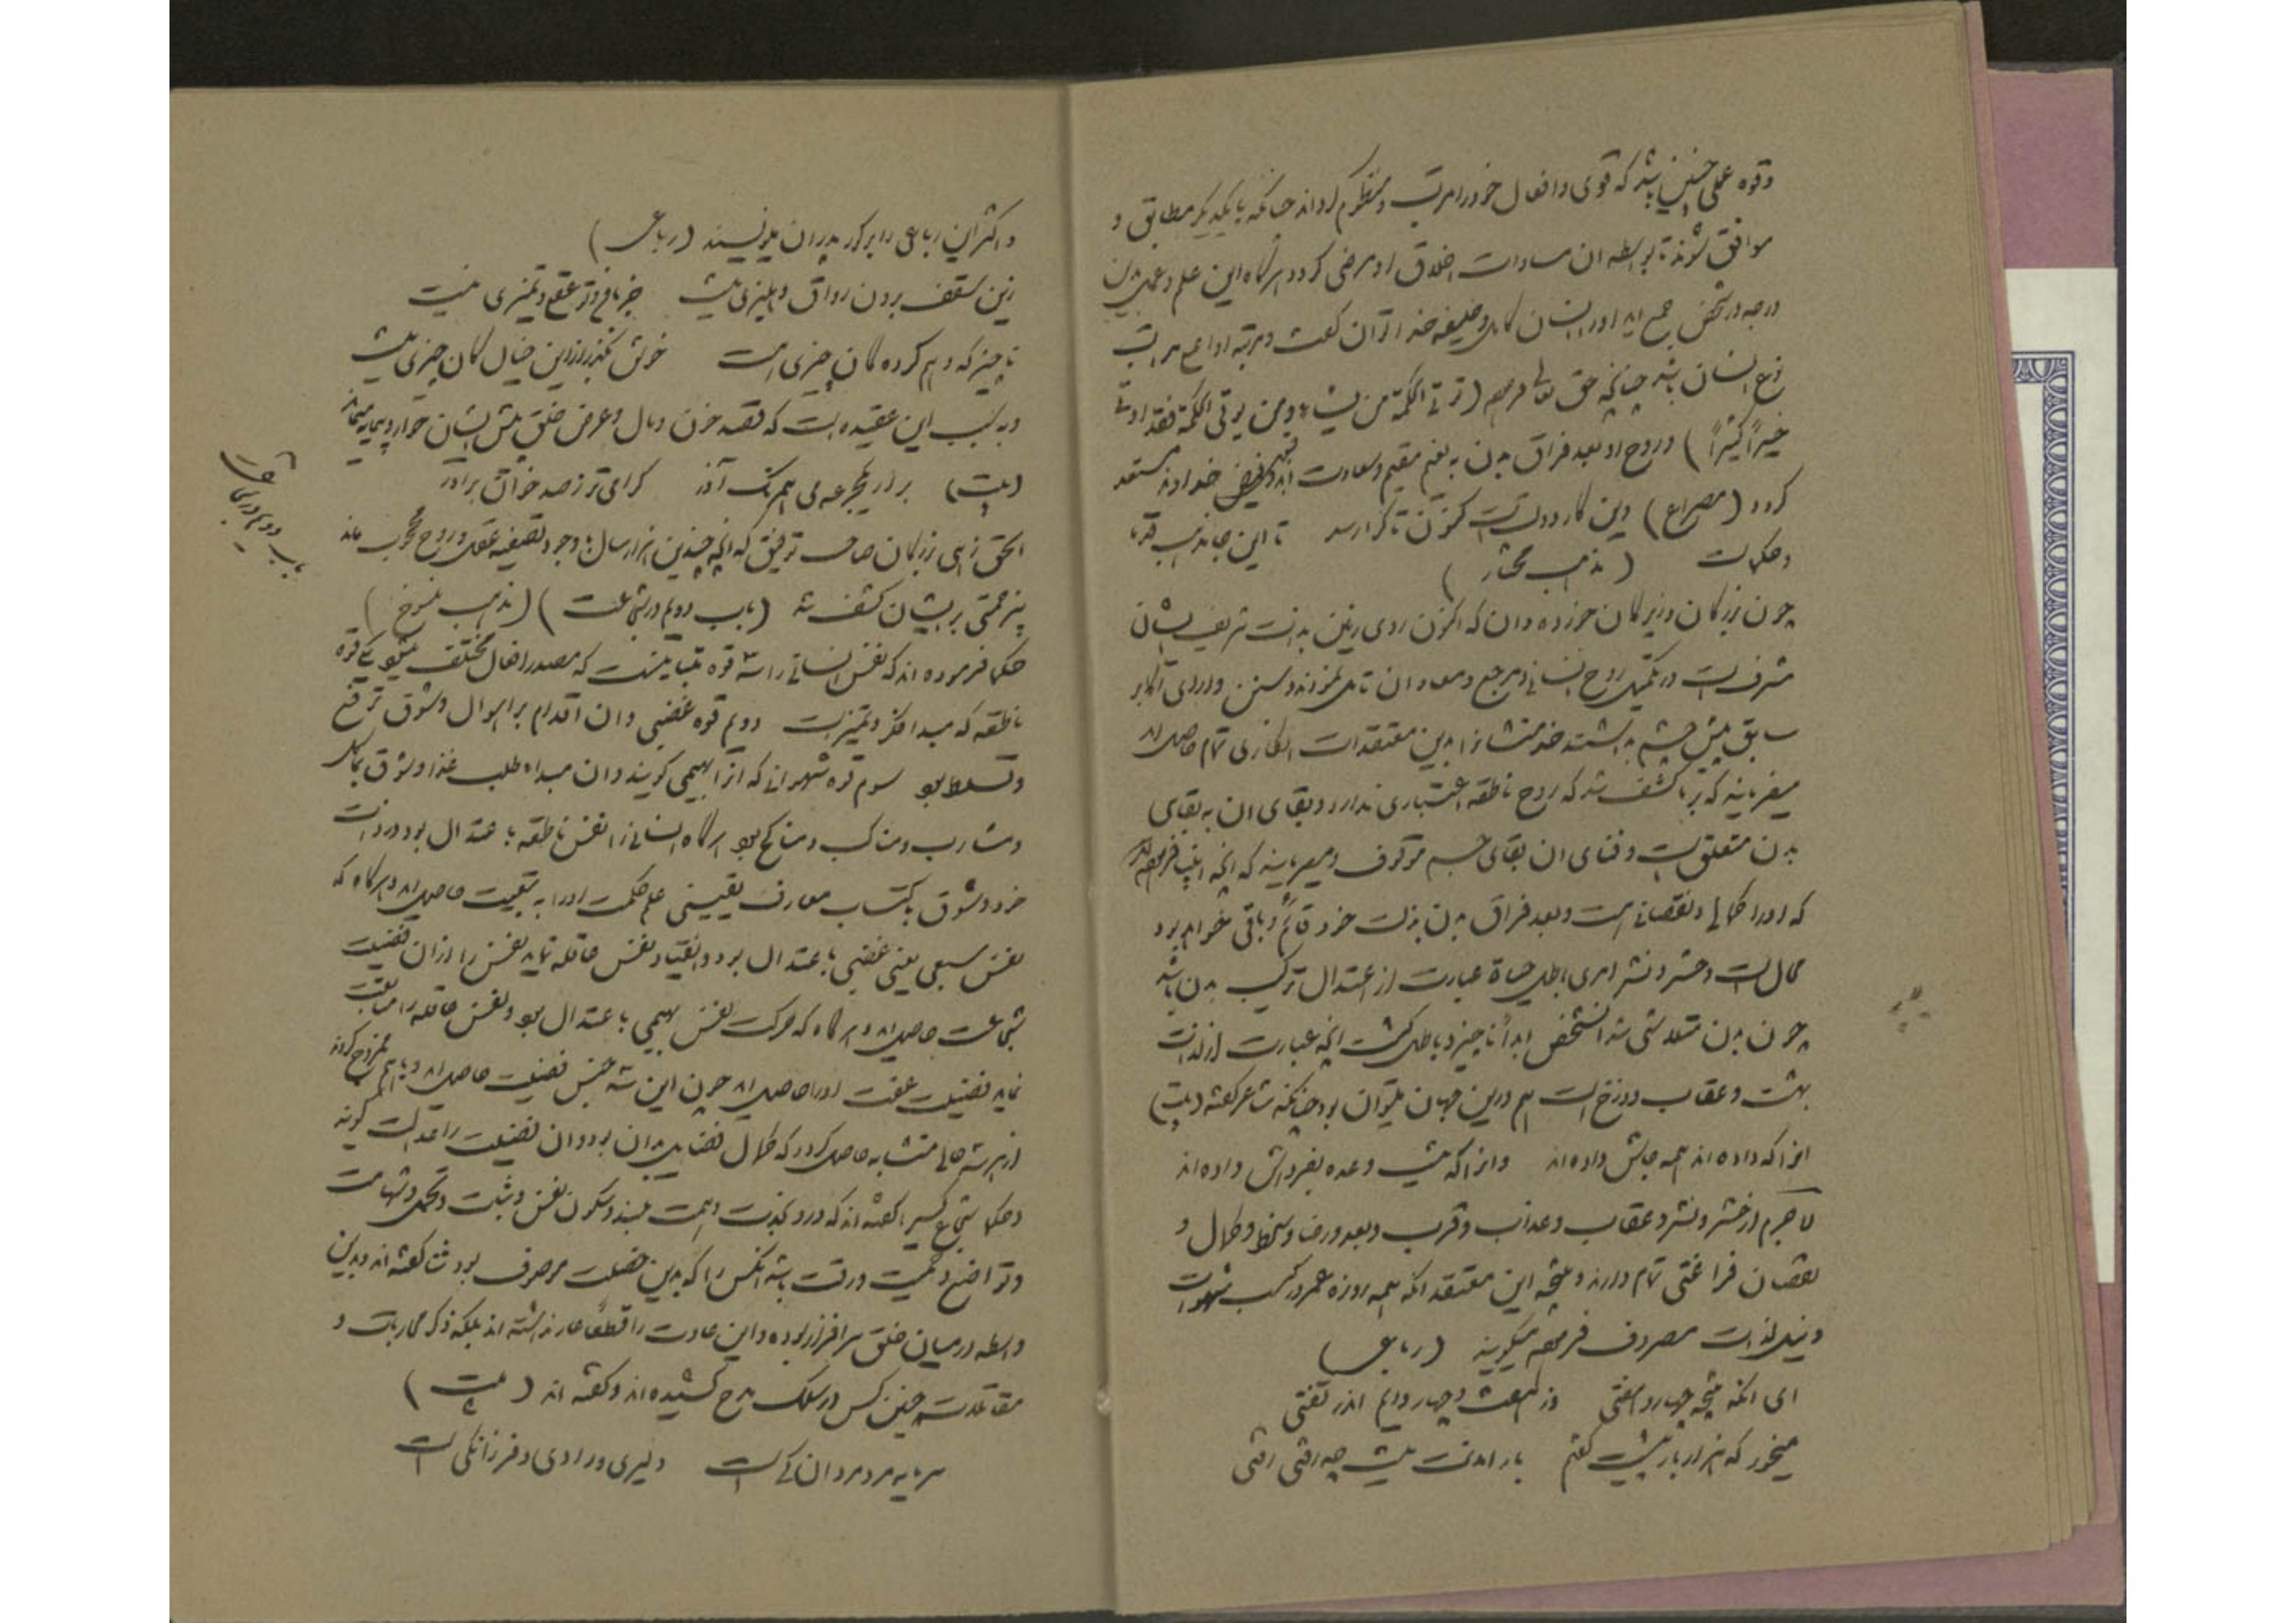 وقوه عملی چنین باشد که قوی و افعال خود را مرتب و منظوم کرداند چنانکه با یکدیکر مطابق و
موافق شوند تا بواسطه ان مساوات اخلاق او مرضی کردد هرکاه این علم و عمل بدین
درجه در شخصی جمع اید او را انسان کامل و خلیفه خدا توان کفت و مرتبه او اعلی مراتب
نوع انسان باشد چنانچه حق تعالی فرموده (توتی الحکمة من یشاء ومن یوتی الحکمة فقد اوتی
خیراً کثیراً) و روح او بعد فراق بدن به نعیم مقیم و سعادت ابد و قبول فیض خداوند مستعد
کردد (مصراع) این کار دولتست کنون تا کرا رسد تا اینجا مذهب قدما
و حکماست (مذهب مختار)
چون بزرکان و زیرکان خورده دان که اکنون روی زمین بذات شریف ایشان
مشرفست در تکمیل روح انسانی و مرجع و معاد ان تامل نمودند و سنن و ارای اکابر
سابق پیش چشم بداشتند خدمتشانرا بدین معتقدات انکاری تمام حاصل امد
میفرمایند که بر ما کشف شد که روح ناطقه اعتباری ندارد و بقای ان به بقای
بدن متعلق است و فنای ان بفنای جسم موقوف و میفرمایند که انچه انبیا فرموده اند
که او را کمالی و نقصانی هست و بعد فراق بدن بذات خود قائم و باقی خواهد بود
محال است و حشر و نشر امری باطل حیاة عبارت از اعتدال ترکیب بدن باشد
چون بدن متلاشی شد انشخص ابداً ناچیز و باطل کشت انچه عبارت از لذات
بهشت و عقاب دوزخ است هم درین جهان میتوان بود چنانکه شاعر کفته (بیت)
انرا که داده اند همه جاش داده اند وانرا که نیست وعده بفرداش داده اند
لاجرم از حشر و نشر و عقاب و عذاب و قرب و بعد و رضا و سخط و کمال و
نقصان فراغتی تمام دارند و نتیجه این معتقد انکه همه روزه عمر در کسب شهوات
و نیل لذات مصروف فرموده میکویند (رباعی)
ای انکه نتیجه چهار و هفتی وز هفت و چهار دایم اندر تفتی
میخور که هزار بار بیشت کفتم باز امدنت نیست چو رفتی رفتی
و اکثر این رباعی را بر کور پدران مینویسند (رباعی)
زین سقف برون رواق و دهلیزی نیست جز با من و تو عقلی و تمیزی نیست
ناچیز که وهم کرده کان چیزی هست خوش بکذر ازین خیال کان چیزی نیست
و به سبب این عقیده است که قصد خون و مال و عرض خلق پیش ایشان خوار و بیمایه مینماید
(بیت) بر او یکجرعه می همرنک آذر کرامی تر ز صد خون برادر
الحق زهی بزرکان صاحب توفیق که انچه چندین هزار سال با وجود تصفیه عقل و روح محجوب ماند
بیزحمتی بر ایشان کشف شد (باب دویم در شجاعت) (مذهب منسوخ)
باب دویم در شجاعت
حکما فرموده اند که نفس انسانی را سه قوه متباینست که مصدر افعال مختلف میشود یکی قوه
ناطقه که مبدا فکر و تمیز است دویم قوه غضبی و ان اقدام بر اهوال و شوق ترفع
و تسلط بود سوم قوه شهوانی که انرا بهیمی کویند و ان مبدا طلب غذا و شوق بماکل
و مشارب و مناکح بود هرکاه انسانی را نفس ناطقه باعتدال بود در ذات
خود و شوق باکتساب معارف یقینی علم حکمت او را به تبعیت حاصل اید و هرکاه که
نفس سبعی یعنی غضبی باعتدال بود و انقیاد نفس عاقله نماید نفس را ازان فضیلت
شجاعت حاصل اید و هرکاه که حرکت نفس بهیمی باعتدال بود و نفس عاقله را متابعت
نماید فضیلت عفت او را حاصل اید چون این سه جنس فضیلت حاصل اید و باهم ممزوج کردند
از هر سه حالی متشابه حاصل کردد که کمال فضایل بدان بود و ان فضیلت را عدالت کویند
و حکما شجاع کسی را کفته اند که درو نجدت و همت بلند و سکون نفس و ثبات و تحمل و شهامت
و تواضع و حمیت و رقت باشد انکس را که بدین خصلت موصوف بود ثنا کفته اند و بدین
واسطه در میان خلق سرافراز بوده و این عادت را قطعاً عار نداشته اند بلکه ذکر محاربات و
مقاتلات چنین کس در سلک مدح کشیده اند و کفته اند (بیت)
سرمایه مرد مردانکی است دلیری و رادی و فرزانکی است